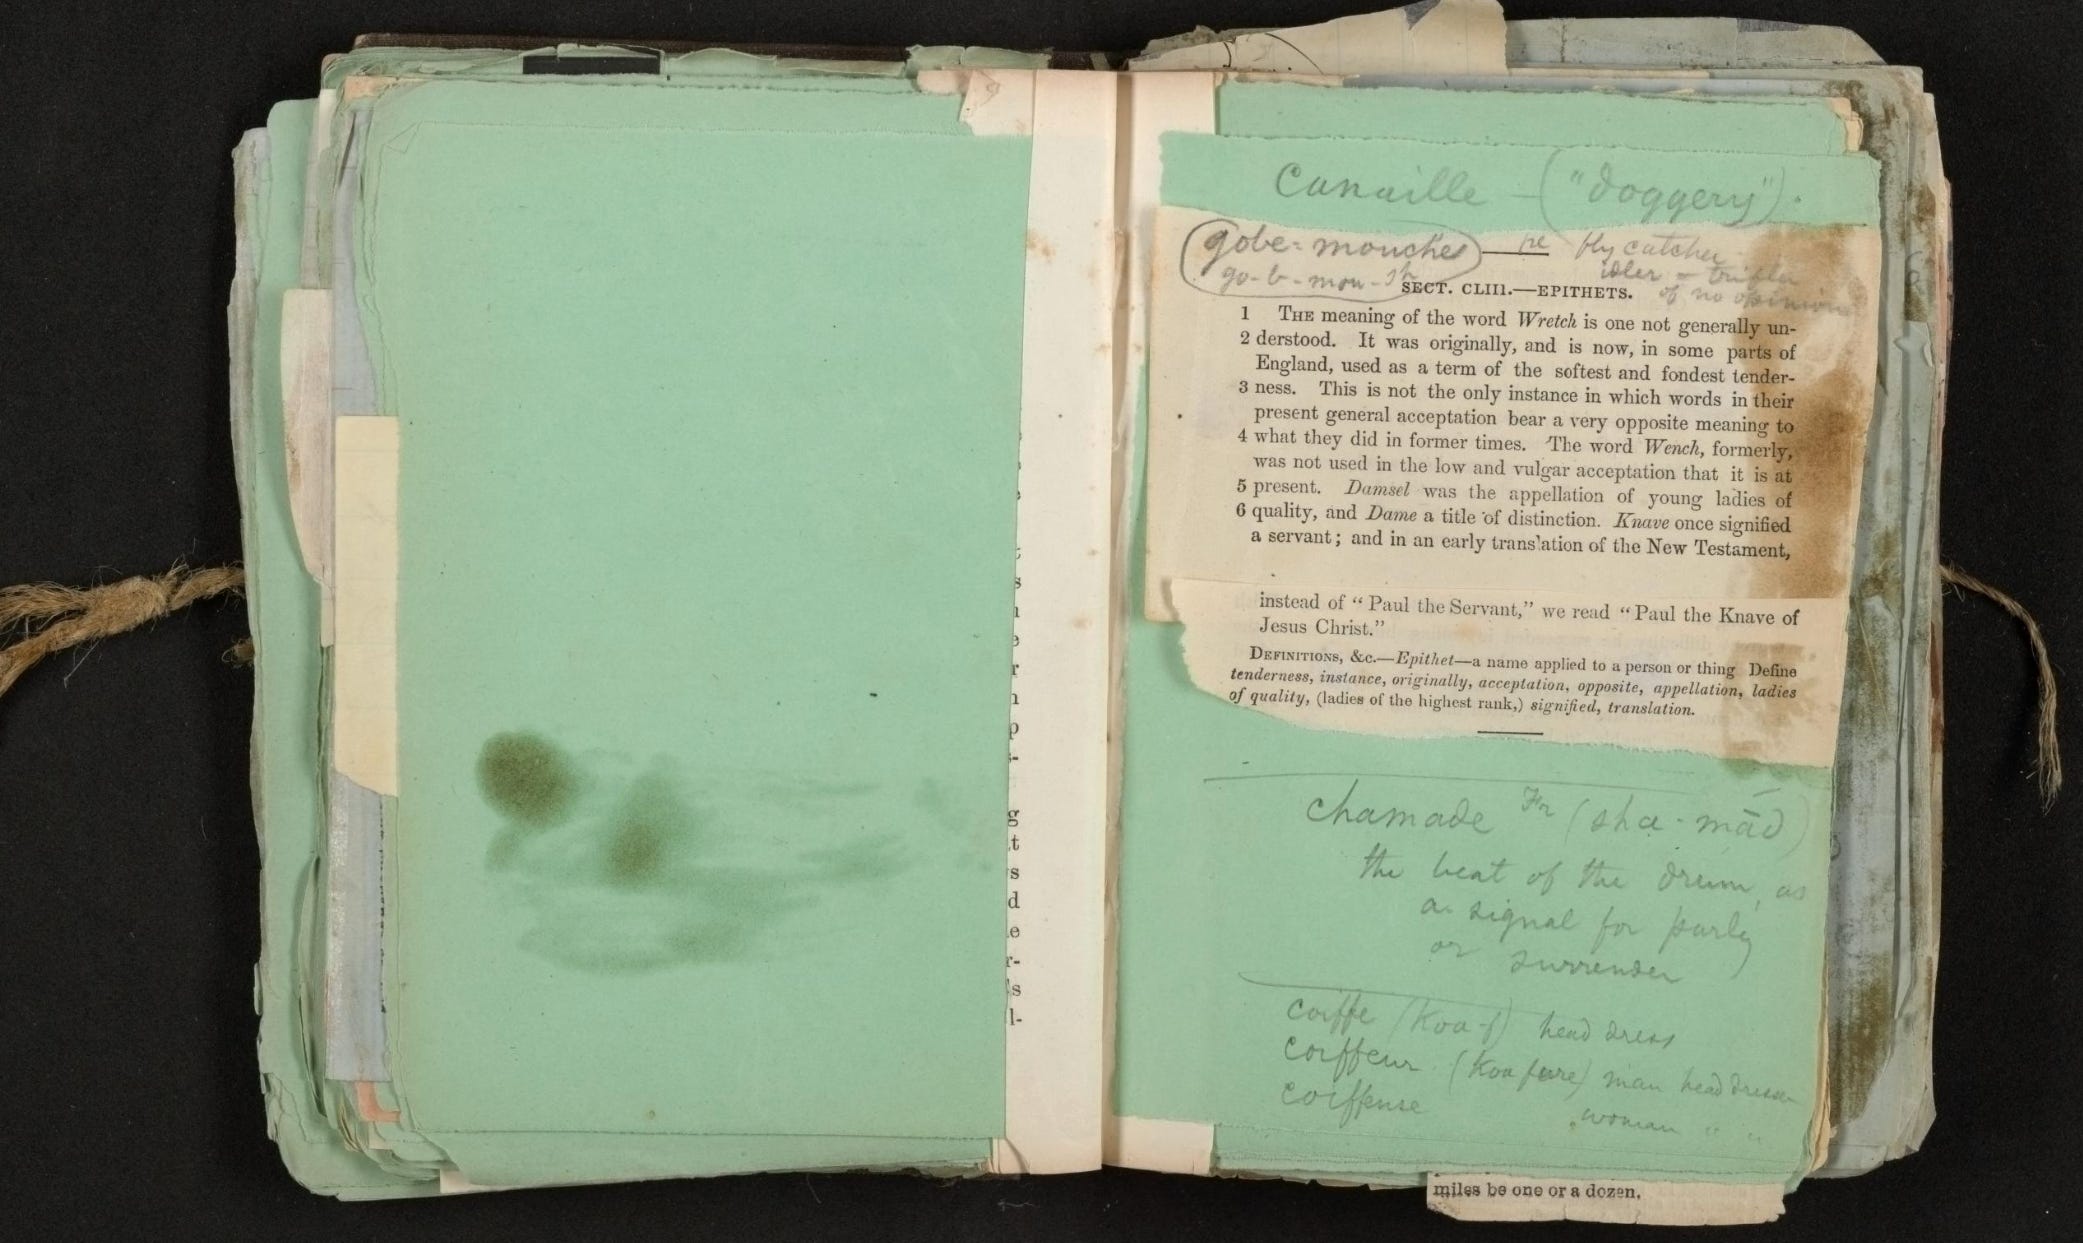 Canaille — ("doggery").
gobe-mouches — fly catcher
go-b-mou-sh idler - trifler
of no opinion
SECT. CLIII.—EPITHETS.
1 THE meaning of the word Wretch is one not generally un-
2 derstood. It was originally, and is now, in some parts of
England, used as a term of the softest and fondest tender-
3 ness. This is not the only instance in which words in their
present general acceptation bear a very opposite meaning to
4 what they did in former times. The word Wench, formerly,
was not used in the low and vulgar acceptation that it is at
5 present. Damsel was the appellation of young ladies of
6 quality, and Dame a title of distinction. Knave once signified
a servant; and in an early translation of the New Testament,
instead of "Paul the Servant," we read "Paul the Knave of
Jesus Christ."
DEFINITIONS, &c.—Epithet—a name applied to a person or thing Define
tenderness, instance, originally, acceptation, opposite, appellation, ladies
of quality, (ladies of the highest rank,) signified, translation.
chamade Fr (sha-mād)
the beat of the drum, as
a signal for parly
or surrender
coiffe (Koa-f) head dress
coiffeur (Koa fure) man head dresser
coiffeuse woman " "
miles be one or a dozen.